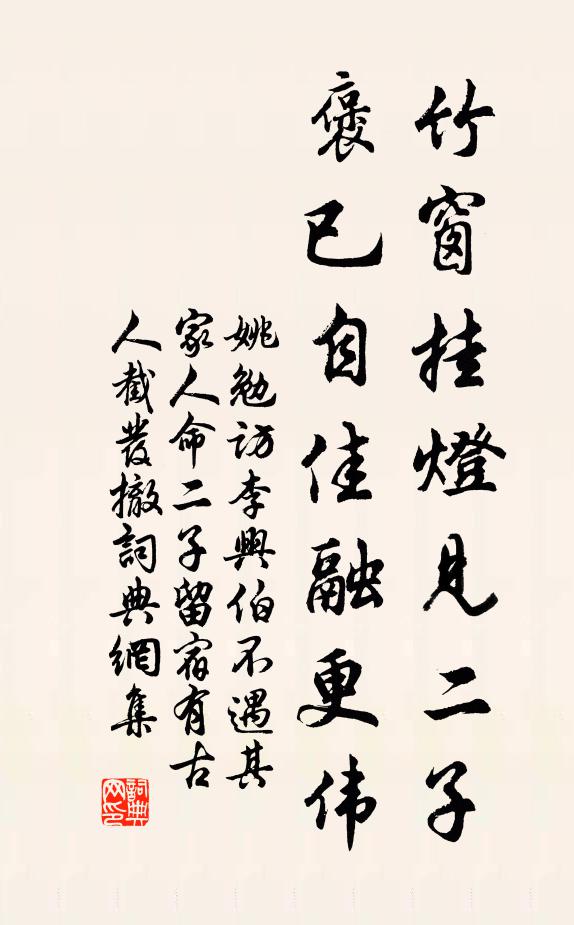 竹窗挂燈見二子
褒已自佳融更伟
姚勉訪李興伯不遇其
家人命二子留宿有古
人截髮撤詞典網集
詞典
网印